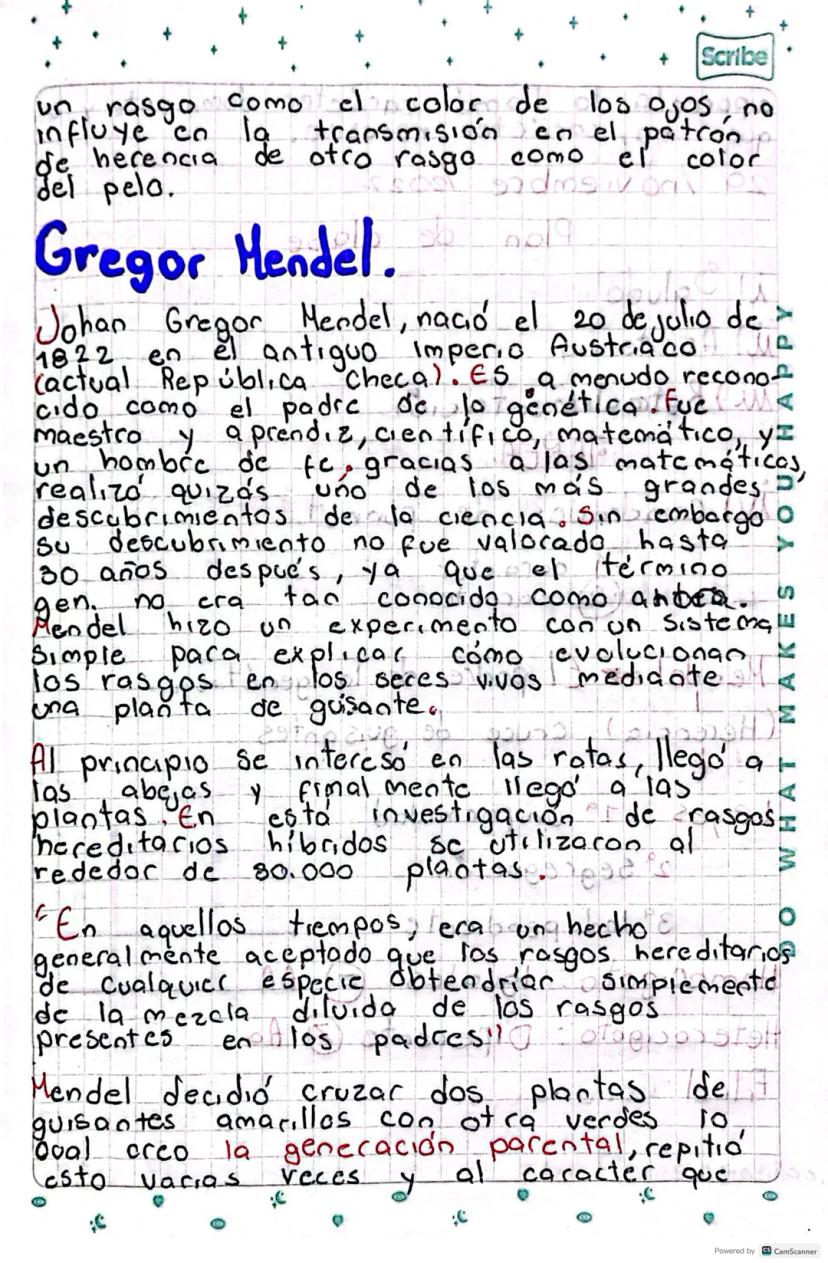 Scribe
un rasgo como el color de los ojos, no
influye en la transmisión en el patrón
de herencia de otro rasgo como el color
del pelo.
Gregor Mendel.
Johan Gregor Mendel, nació el 20 de julio de
1822 en el antiguo Imperio Austriaco
(actual República Checa). Es a menudo recono-
cido como el padre de la génética. Fue
maestro y aprendiz, científico, matemático, y
un hombre de fe, gracias a las matemáticas,
realizó quizás uno de los más grandes
descubrimientos de la ciencia. Sin embargo
su descubrimiento no fue valorado hasta
30 años después, ya que el término
gen. no era tan conocido como
Mendel hizo un experimento con un sistema
simple para explicar cómo evolucionan
los rasgos en los seres vivos mediante
una planta de guisante.
Al principio se interesó en las ratas, llegó a
las abejas y finalmente llegó a las
plantas. En está investigación de rasgos
hereditarios híbridos se utilizaron al
rededor de 30.000 plantas.
"En aquellos tiempos, era un hecho
generalmente aceptado que los rasgos hereditarios
de cualquier especie obtendrían simplemente
de la mezcla diluida de los rasgos
presentes en los padres"
Mendel decidió cruzar dos plantas de
guisantes amarillos con otra verdes lo
cual creo la generación parental, repitió
esto varias veces y al caracter que
DO WHAT MAKES YOU HAPPY
Powered by CS CamScanner